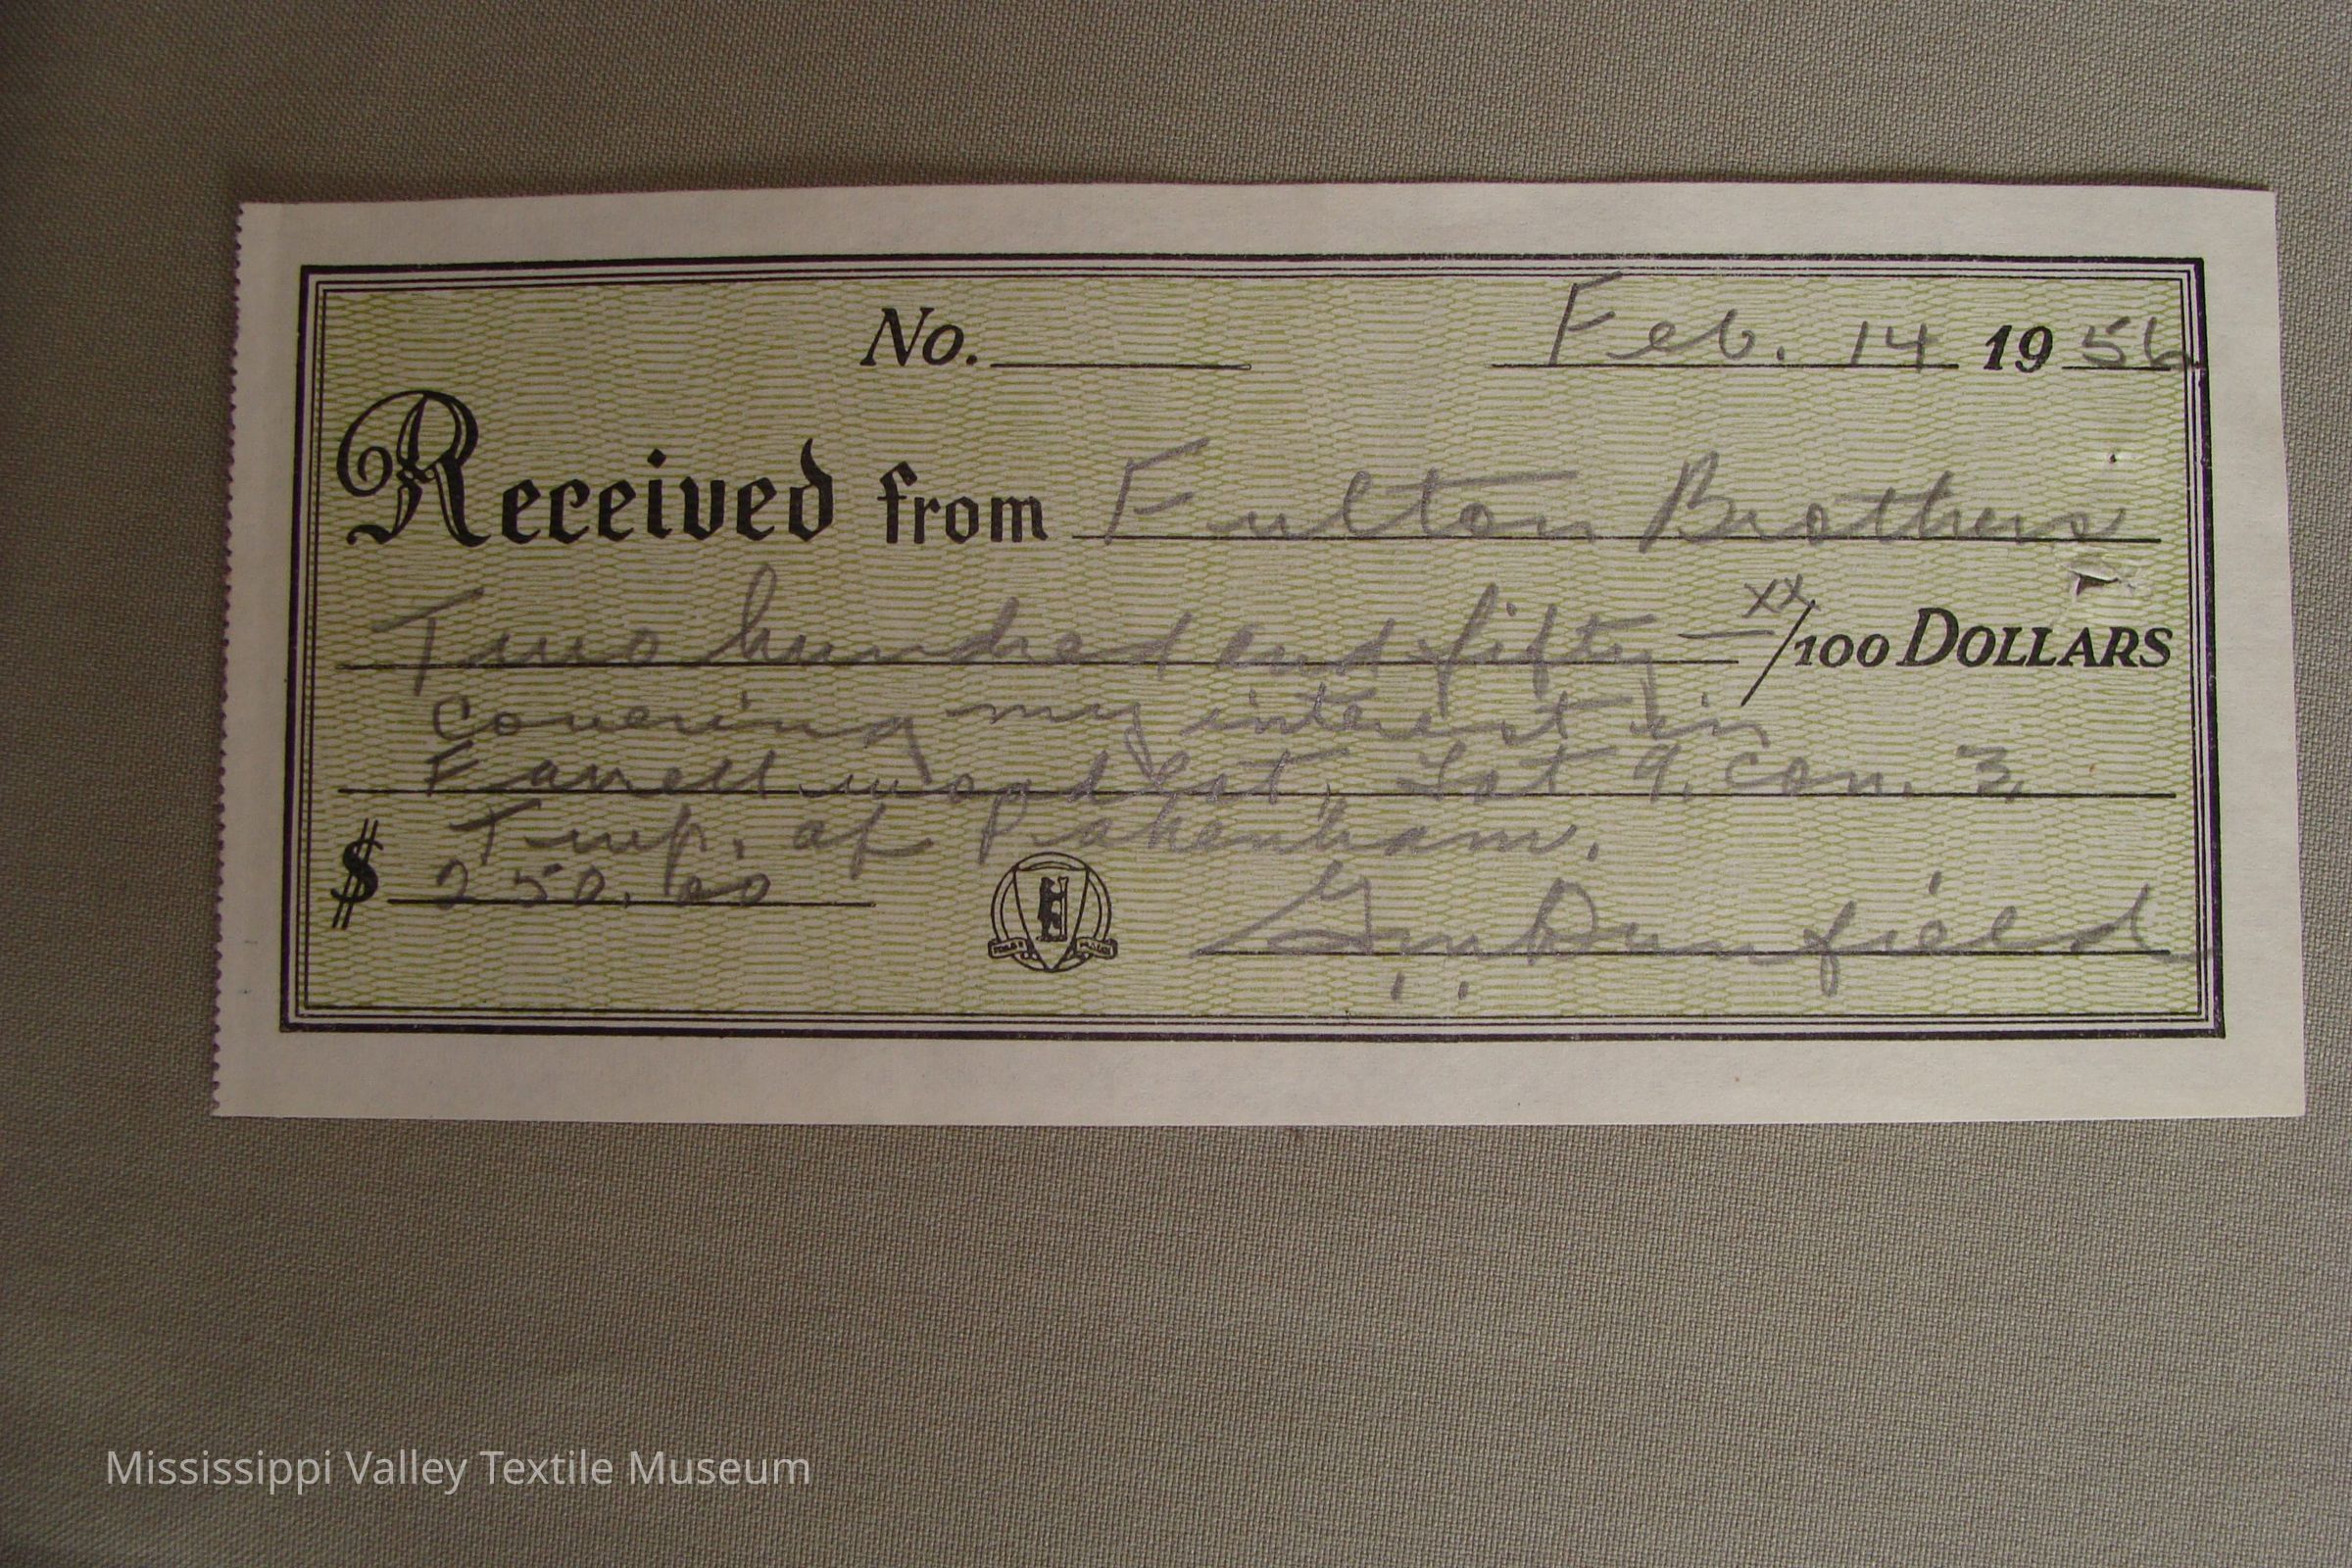 No. Feb. 14 1956
Received from Fulton Brothers
Two hundred and fifty — xx/100 DOLLARS
covering my interest in
Farrell wood lot, Lot 9, Con. 3,
Twp. of Pakenham.
$ 250.00
Dunfield
Mississippi Valley Textile Museum